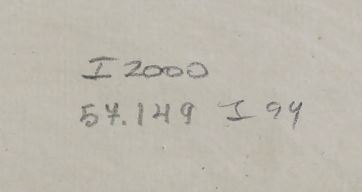 I 2000
57.149 I 94